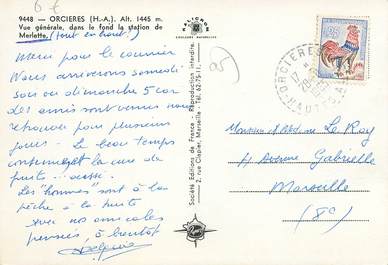 6€
9448 — ORCIERES (H.-A.). Alt. 1445 m.
Vue générale, dans le fond la station de
Merlette. (tout en haut!)
Merci pour le courrier
Nous arriverons samedi
soir ou dimanche 5 car
des amis sont venus nous
retrouver pour plusieurs
jours. Le beau temps
continue et la cure de
fruits aussi.
Les "hommes" sont à la
pêche à la truite
avec nos amicales
pensées, à bientôt
Société Editions de France - Reproduction interdite.
2, rue Clapier, Marseille - Tél. 62-75-11.
ORCIERES
HAUTES-ALPES
0,25
Monsieur et Mme Le Roy
Avenue Gabrielle
Marseille
(8e)